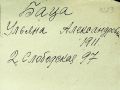 Баца
Ульяна Александровна
1911
2 Слободская 97